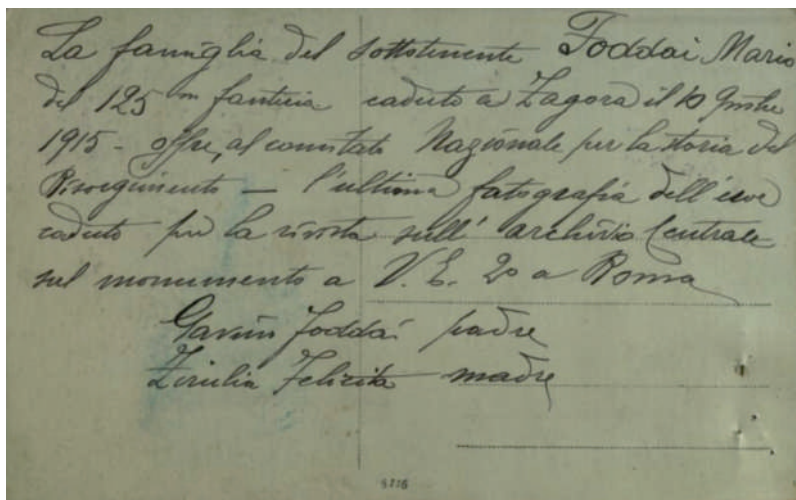 La famiglia del sottotenente Foddai Mario
del 125 m fanteria caduto a Zagora il 10 9mbre
1915 - offre, al comitato Nazionale per la storia del
Risorgimento — l'ultima fotografia dell'eroe
caduto per la rivista sull' archivio Centrale
sul monumento a V. E. 2º a Roma
Gavino Foddai padre
Zirulia Felicita madre